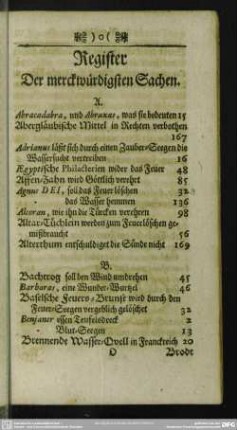 )o(
Register
Der merckwürdigsten Sachen.
A.
Abracadabra, und Abraxas, was sie bedeuten 15
Abergläubische Mittel in Rechten verbothen
167
Adrianus läst sich durch einen Zauber-Seegen die
Wassersucht vertreiben 16
Ægyptische Philacterien wider das Feuer 48
Affen-Zahn wird Göttlich verehrt 85
Agnus DEI, soll das Feuer löschen 32
- das Wasser hemmen 136
Alcoran, wie ihn die Türcken verehren 98
Altar-Tüchlein werden zum Feuerlöschen ge-
mißbraucht 56
Alterthum entschuldiget die Sünde nicht 169
B.
Bachtrog soll den Wind umdrehen 45
Barbaras, eine Wunder-Wurtzel 46
Baselsche Feuers-Brunst wird durch den
Feuer-Seegen vergeblich gelöschet 32
Benjaner essen Teufelsdreck 2
- Blut-Seegen 13
Brennende Wasser-Qvell in Franckreich 20
O Brodt